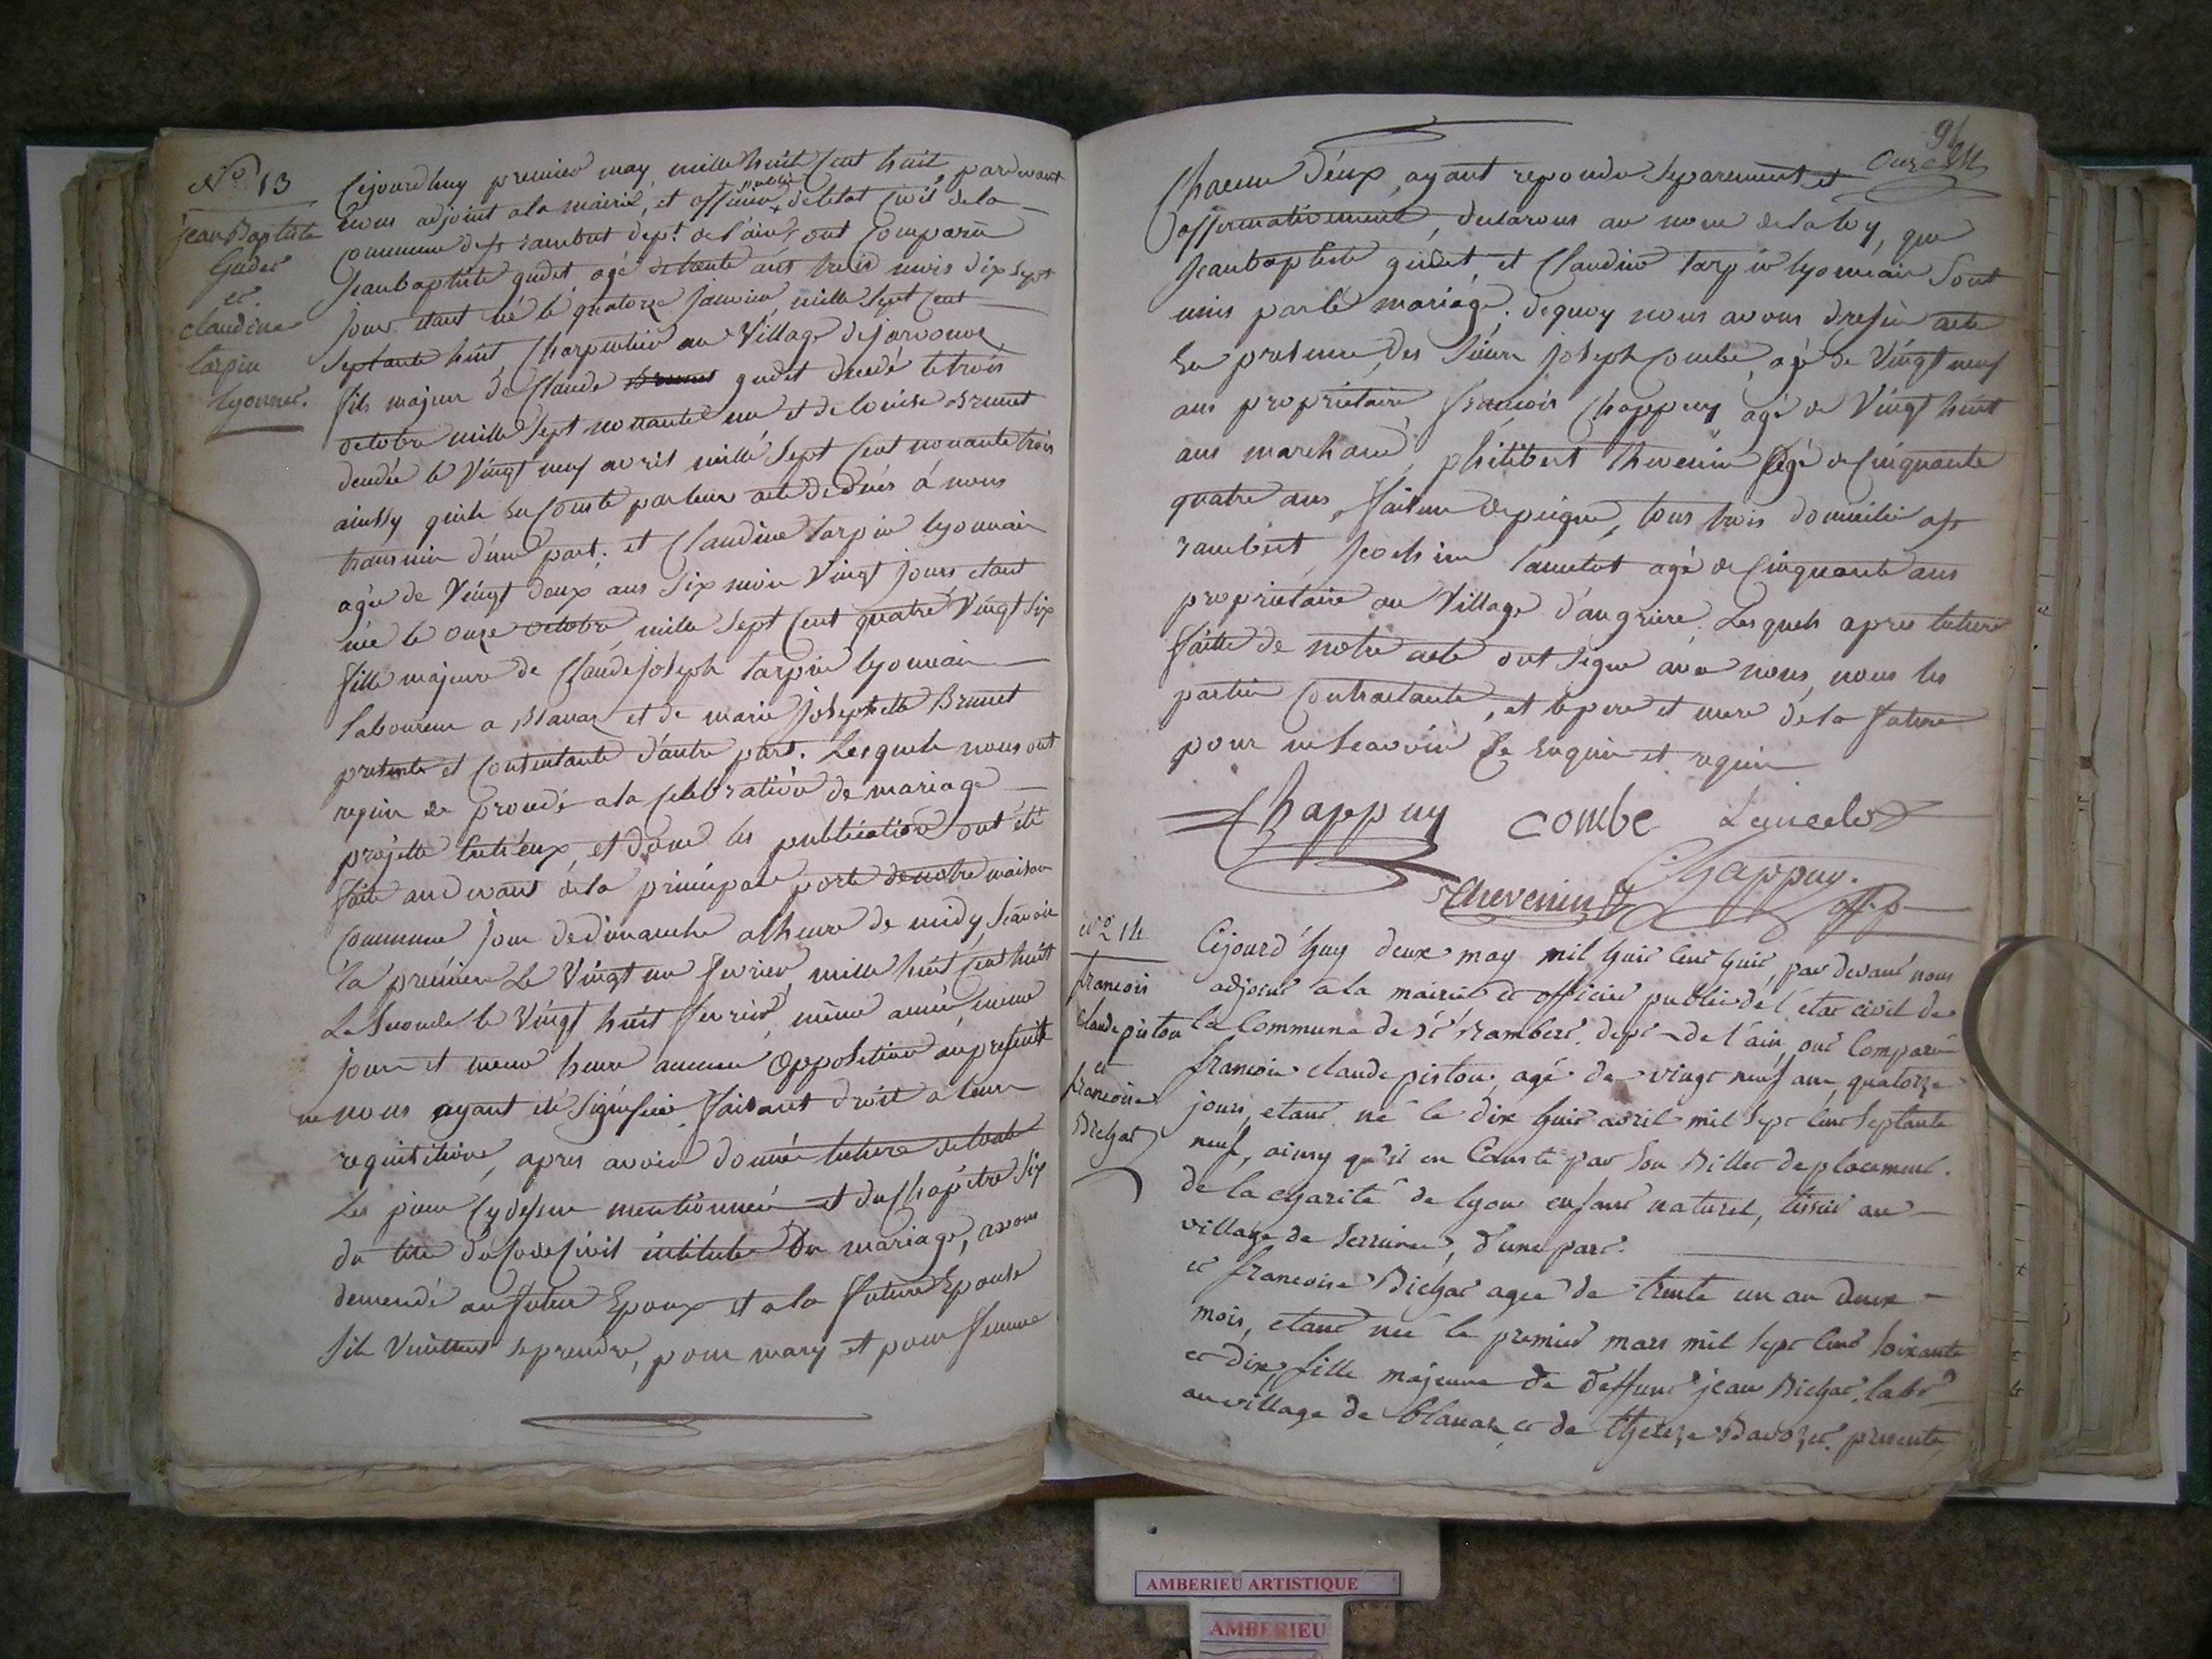 N.o 13
jean Baptiste
Gudet
et
claudine
tarpin
lyonnet.
Cejourdhuy premier may mille huit Cent huit, pardevant
nous adjoint a la mairie, et officier public de letat Civil de la
Commune de st rambert dept. de l'ain, ont Comparu
Jean baptiste gudet agé de trente ans trois mois dix sept
jour etant né le quatorze janvier mille Sept Cent
Septante huit Charpentier au Village de javornoz
fils majeur de Claude gudet decedé le trois
octobre mille Sept nonante un et de louise Brunet
decedée le Vingt neuf avril mille Sept Cent nonante trois
ainsy quil en Conste par leur acte de deces à nous
transmis d'une part; et Claudine tarpin lyonnais
agée de Vingt deux ans Six mois Vingt jours etant
née le onze octobre mille Sept Cent quatre Vingt Six
fille majeure de Claude joseph tarpin lyonnais
laboureur a Blanaz et de marie josephette Brunet
presente et Consentante d'autre part. Lesquels nous ont
requis de procedé a la Celebration de mariage
projetté entr'eux, et dont les publication ont été
faite au devant de la principale porte de notre maison
Commune jour de dimanche a lheure de midy, Scavoir
la premiere Le Vingt un fevrier mille huit Cent huit
La Seconde le Vingt huit fevrier même année, même
jour et meme heure aucune opposition au present
ne nous ayant été Signifiée faisant droit a leur
requisitions, apres avoir donnée lecture de toute
Les piece Cy dessus mentionnée et du Chapitre Six
du titre du Code Civil intitulé Du mariage, avons
demendé au futur Epoux et a la future Epouse
Sils Veullent Se prendre, pour mary et pour femme
94
onze
Chacun d'eux, ayant repondu Separement et
affirmativement, declarons au nom de la loy, que
Jean baptiste gudet, et Claudine tarpin lyonnais Sont
unis par le mariage; de quoy nous avons dressé acte
En presence des Sieurs joseph Combe, agé de Vingt neuf
ans proprietaire, francois Chappuy agé de Vingt huit
ans marchand, philibert thevenin agé de Cinquante
quatre ans, faiseur de peigne, tous trois domicilié a st
rambert, Joachim lancelot agé de Cinquante ans
proprietaire au Village d'angriere. Lesquels apres lecture
faitte de notre acte ont Signé avec nous, nous les
partie Contractante, et le pere et mere de la future
pour ne Scavoir de Enquis et requis
Chappuy combe
Thevenin Chappuy.
off. p.
N.o 14
francois
Claude piston
et
francoise
Bichat
Cejourd'huy deux may mil huit Cent huit, par devant nous
adjoint a la mairie et officier public de l'état civil de
la Commune de St Rambert, dept de l'ain, ont Comparu
francois claude piston, agé de vingt neuf ans, quatorze
jours, etant né le dix huit avril mil Sept Cent Septante
neuf, ainsy qu'il en Conste par Son Billet de placement.
de la charité de lyon enfant naturel, tissier au
village de Serriere, d'une part.
et francoise Bichat agée de trente un an deux
mois, etant née le premier mars mil Sept Cent Soixante
et dix, fille majeure de deffunt jean Bichat, labr
au village de blanaz, et de Thereze Bavozet, presente,
AMBERIEU ARTISTIQUE
AMBERIEU